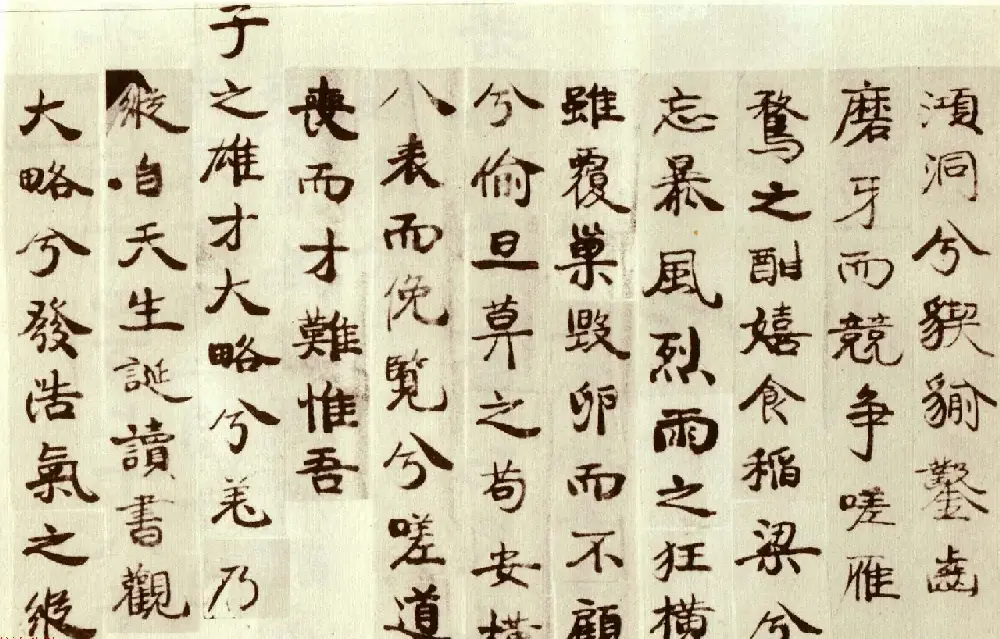 澒洞兮猰貐鑿齒
磨牙而競争嗟雁
鶩之酣嬉食稻梁兮
忘暴風烈雨之狂橫
雖覆巢毀卵而不顧
兮偷旦莫之苟安橫
八表而俛覽兮嗟道
喪而才難惟吾
子之雄才大略兮羌乃
縱自天生誕讀書觀
大略兮發浩氣之縱